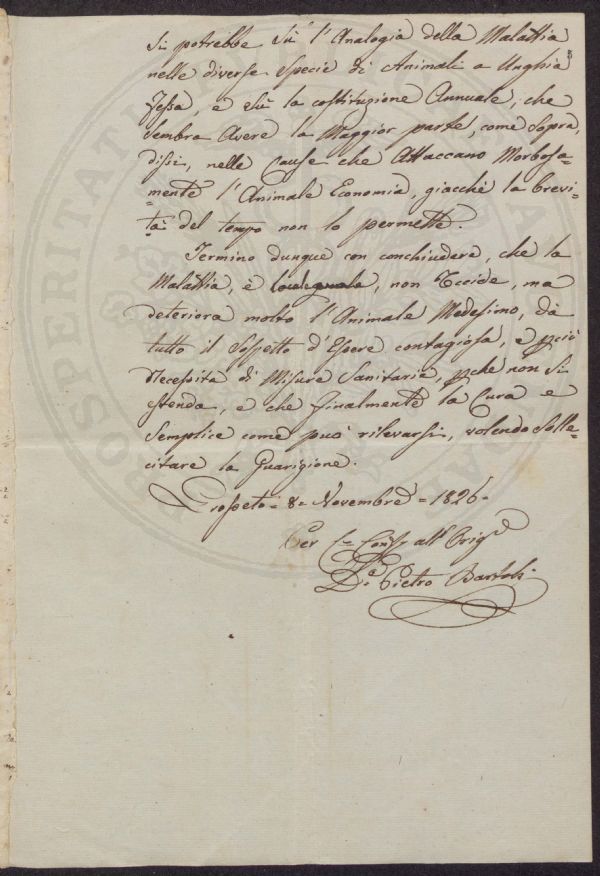 si potrebbe Sù l'Analogia della Malattia
nelle diverse Specie di Animali a Unghia
Fessa, e sù la costituzione Annuale, che
Sembra Avere la Maggior parte, come Sopra
dissi, nelle Cause che Attaccano Morbosa-
mente l'Animale Economia, giacchè la brevi-
tà del tempo non lo permette.
Termino dunque con conchiudere, che la
Malattia, è, non Uccide, ma
deteriora molto l'Animale Medesimo, dà
tutto il Sospetto d'Essere contagiosa, e pciò
Necessita di Misure Sanitarie, pche non Si
Stenda, e che finalmente la Cura e
Semplice come può rilevarsi, volendo Solle-
citare la Guarigione.
Grosseto = 8 = Novembre = 1826 =
Per Ca Conffe all' Origle
Pietro Bartoli
PROSPERITATI